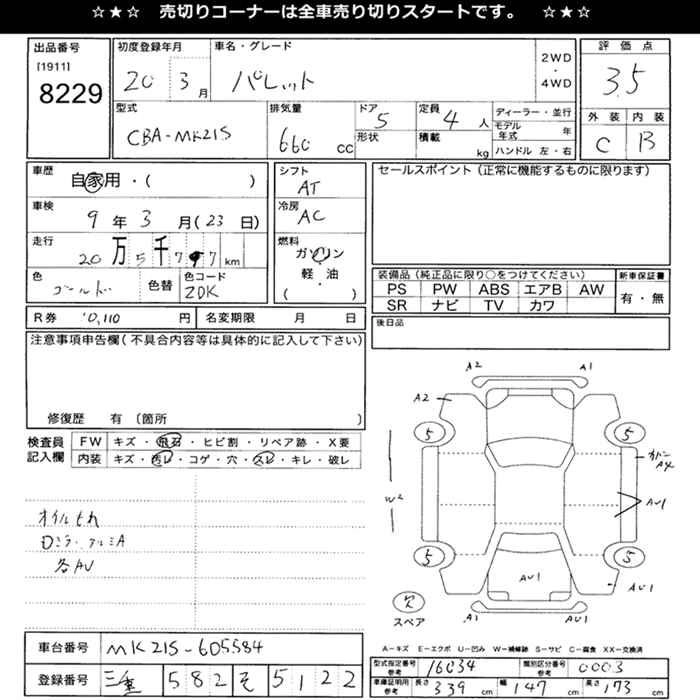 ☆★☆ 売切りコーナーは全車売り切りスタートです。 ☆★☆
出品番号
[1911]
8229
初度登録年月
20 3月
車名・グレード
パレット
2WD
・
4WD
評価点
3.5
外装 内装
C B
型式
CBA-MK21S
排気量
660 cc
ドア
5
形状
定員
4 人
積載
kg
ディーラー・並行
モデル年式 年
ハンドル 左・右
車歴
自家用・( )
車検
9年3月(23日)
走行
20万5千7 7 km
色
ゴールド
色替
色コード
ZDK
シフト
AT
冷房
AC
燃料
ガソリン
軽・油
( )
セールスポイント(正常に機能するものに限ります)
装備品(純正品に限り○をつけてください)
PS PW ABS エアB AW
SR ナビ TV カワ
新車保証書
有・無
R券 10,110 円
名変期限 月 日
後日品
注意事項申告欄(不具合内容等は具体的に記入して下さい)
修復歴 有 〔箇所 〕
検査員
記入欄
FW キズ・飛石・ヒビ割・リペア跡・X要
内装 キズ・汚レ・コゲ・穴・スレ・キレ・破レ
オイルもれ
各AU
A2 A1
A2
5 5
A4
W2
AU1
5 5
AU1
AU1
A1 AU1
スペア
A-キズ E-エクボ U-凹み W-補修跡 S-サビ C-腐食 XX-交換済
車台番号 MK21S-605584
登録番号 三重 582 そ 5122
型式指定番号
参考
16034
類別区分番号
参考
0003
車庫証明用
参考
長さ 339 cm 幅 147 cm 高さ 173 cm